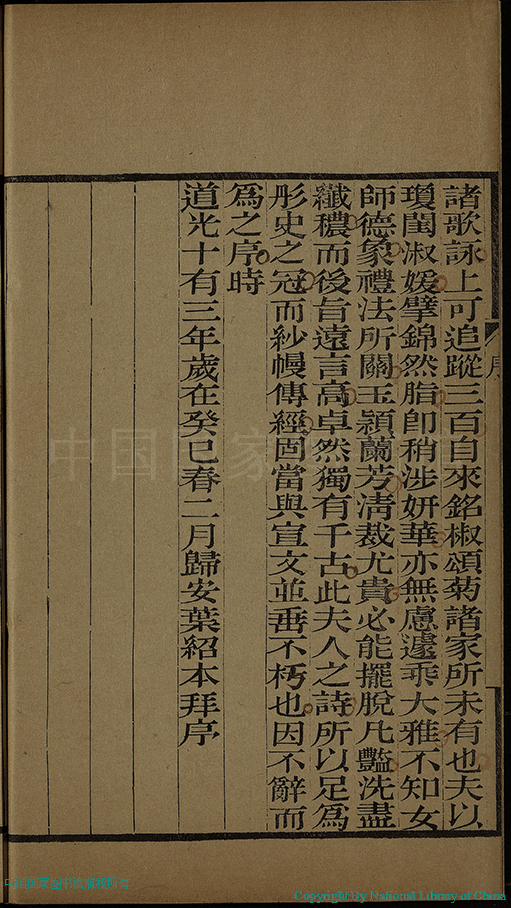 諸歌詠上可追蹤三百自來銘椒頌菊諸家所未有也夫以
瓊閨淑媛擘錦然脂卽稍涉妍華亦無慮遽乖大雅不知女
師德象禮法所關玉潁蘭芳淸裁尤貴必能擺脫凡豔洗盡
纖穠而後旨遠言高卓然獨有千古此夫人之詩所以足爲
彤史之冠而紗幔傳經固當與宣文並垂不朽也因不辭而
爲之序時
道光十有三年歲在癸巳春二月歸安葉紹本拜序
序
中国国家
Copyright by National Library of China